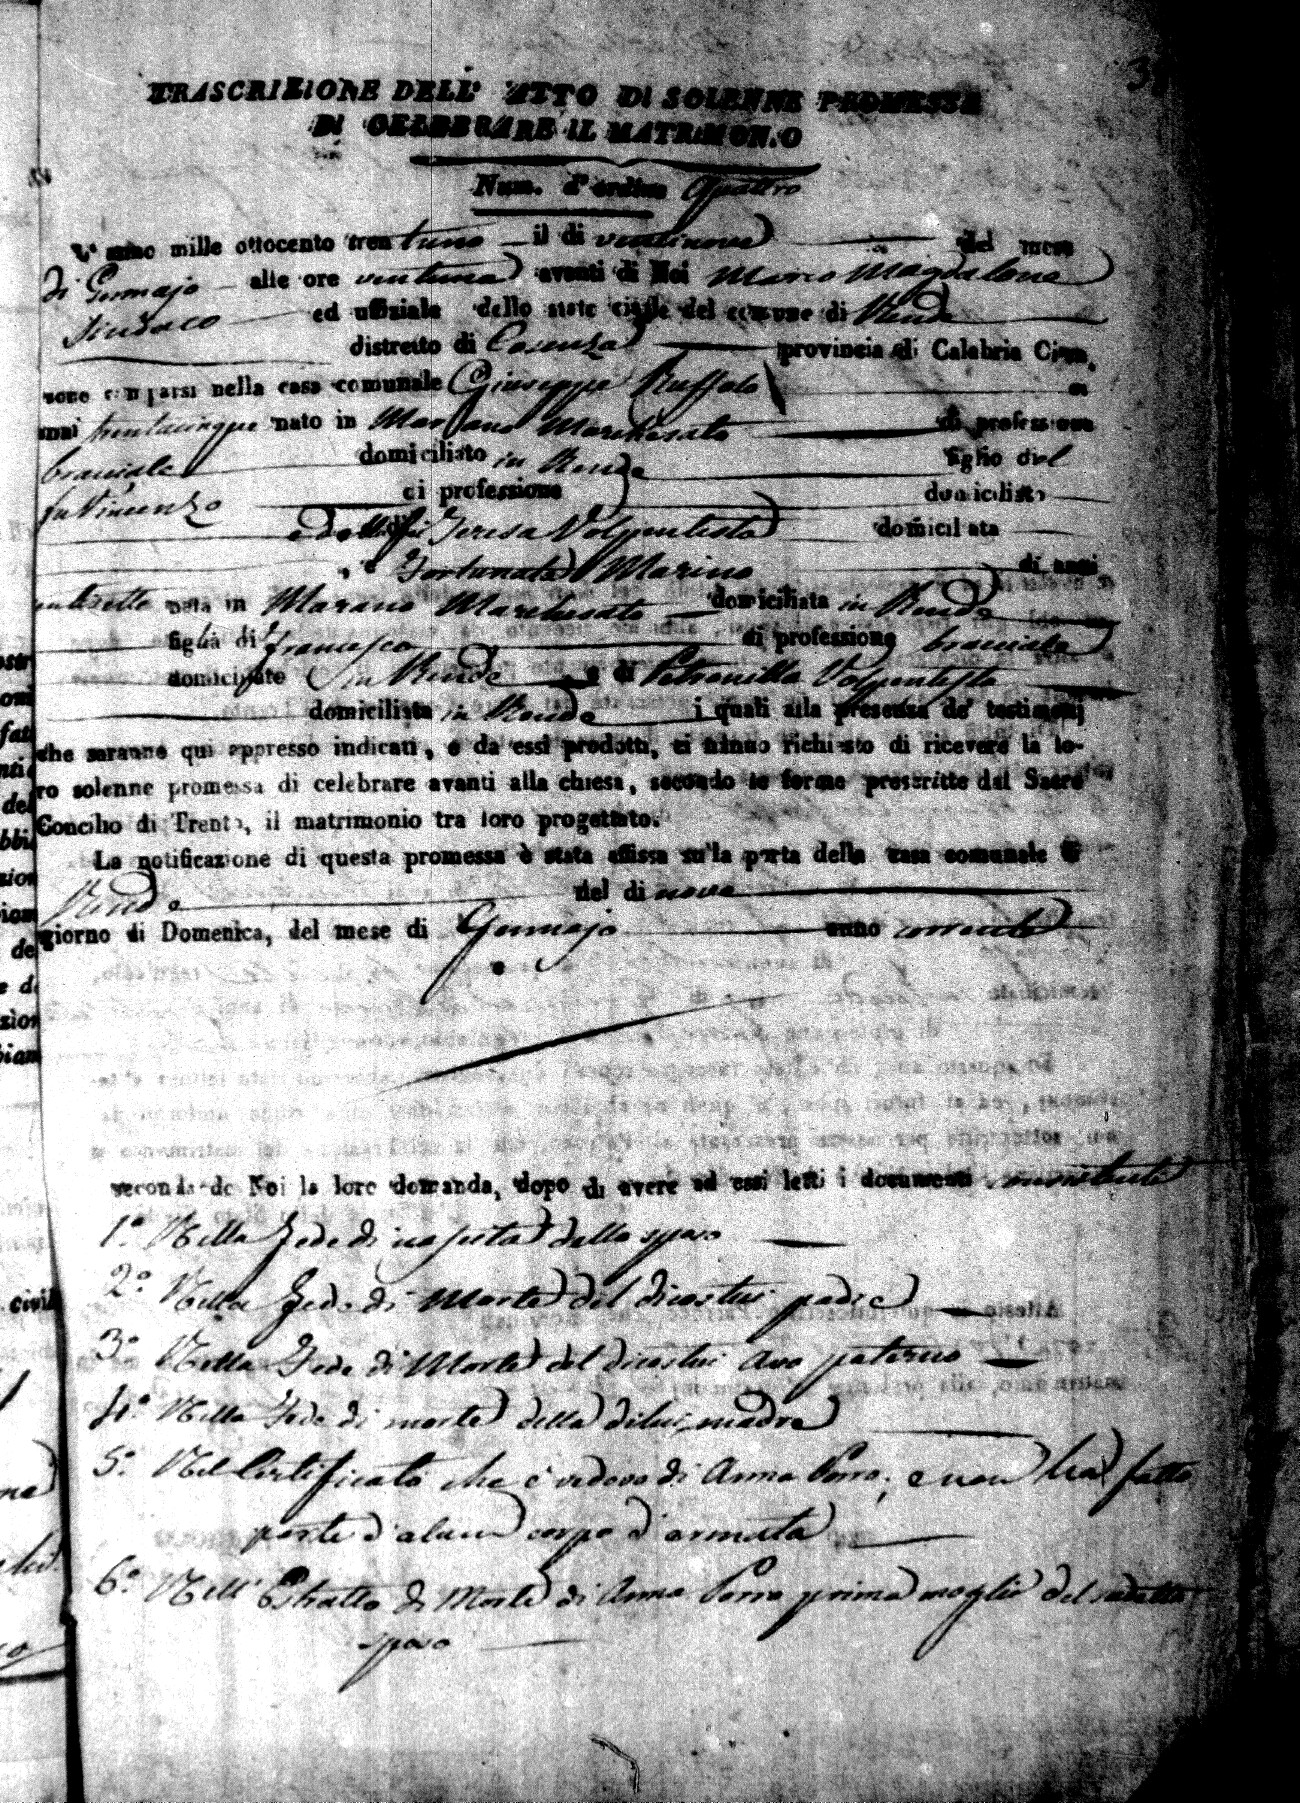 TRASCRIZIONE DELL' ATTO DI SOLENNE PROMESSA
DI CELEBRARE IL MATRIMONIO
Num. d'ordine Quattro
L'anno mille ottocento trentuno il di ventinove del mese
di Gennajo alle ore ventuna avanti di Noi Marco Magdalena
Sindaco ed uffiziale dello stato civile del comune di Rende
distretto di Cosenza provincia di Calabria Citra,
sono comparsi nella casa comunale Giuseppe Ruffolo di
anni trentacinque nato in Marano Marchesato di professione
bracciale domiciliato in Rende figlio del
fu Vincenzo di professione domiciliato
e della fu Teresa Volpentesta domiciliata
e Fortunata Marino di anni
nata in Marano Marchesato domiciliata in Rende
figlia di Francesco di professione bracciale
domiciliato in Rende e di Petronilla Volpentesta
domiciliata in Rende i quali alla presenza de' testimonj
che saranno qui appresso indicati, e da essi prodotti, ci hanno richiesto di ricevere la lo-
ro solenne promessa di celebrare avanti alla chiesa, secondo le forme prescritte dal Sacro
Concilio di Trento, il matrimonio tra loro progettato.
La notificazione di questa promessa è stata affissa su la porta della casa comunale di
Rende del di nove
giorno di Domenica, del mese di Gennajo anno corrente
secondando Noi la loro domanda, dopo di avere ad essi letti i documenti consistenti
1.° Nella Fede di nascita dello sposo
2.° Nella Fede di Morte del dicostui padre
3.° Nella Fede di Morte del dicostui Avo paterno
4.° Nella Fede di morte della dilui madre
5.° Nel Certificato che è vedovo di Anna Porro; e non ha fatto
parte d'alcun corpo d'armata
6.° Nell' Estratto di Morte di Anna Porro prima moglie del sudetto
sposo